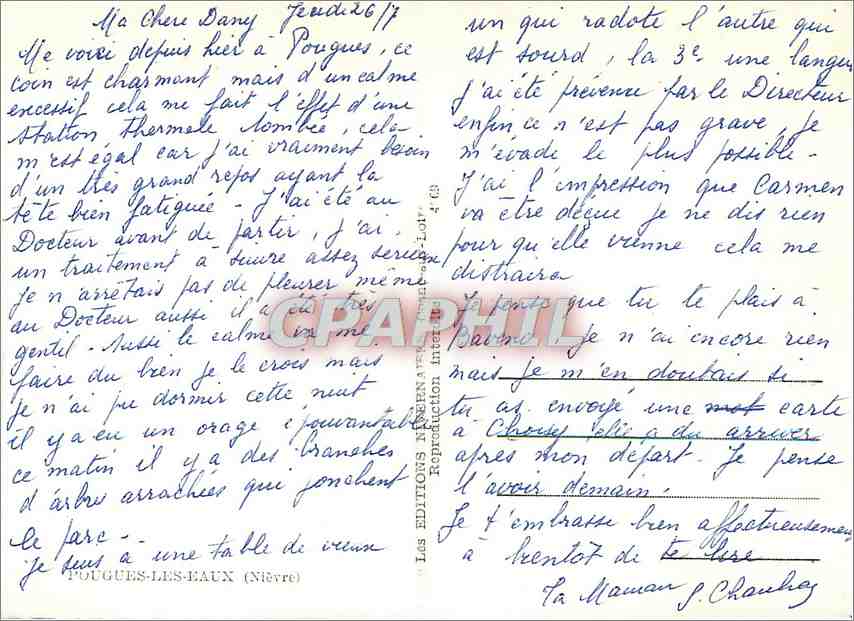 Ma Chere Dany Jeudi 26/7
Me voici depuis hier à Pougues, ce
coin est charmant mais d'un calme
excessif cela me fait l'effet d'une
station thermale tombée, cela
m'est égal car j'ai vraiment besoin
d'un très grand repos ayant la
tête bien fatiguée - J'ai été au
Docteur avant de partir, j'ai
un traitement à suivre assez serieux
je n'arrêtais pas de pleurer même
au Docteur aussi il a été très
gentil - Aussi le calme va me
faire du bien je le crois mais
je n'ai pu dormir cette nuit
il y a eu un orage épouvantable
ce matin il y a des branches
d'arbres arrachées qui jonchent
le parc -
je suis à une table de vieux
POUGUES-LES-EAUX (Nièvre)
Les EDITIONS NIVERNAISES
Reproduction interdite
CPAPHIL
un qui radote l'autre qui
est sourd, la 3e une langue
j'ai été prévenue par le Directeur
enfin ce n'est pas grave, je
m'évade le plus possible -
J'ai l'impression que Carmen
va être déçue je ne dis rien
pour qu'elle vienne cela me
distraira
Je pense que tu te plais à
je n'ai encore rien
mais je m'en doutais si
tu as envoyé une mot carte
à Choisy elle a du arriver
après mon départ. Je pense
l'avoir demain.
Je t'embrasse bien affectueusement
à bientôt de te lire
Ta Maman